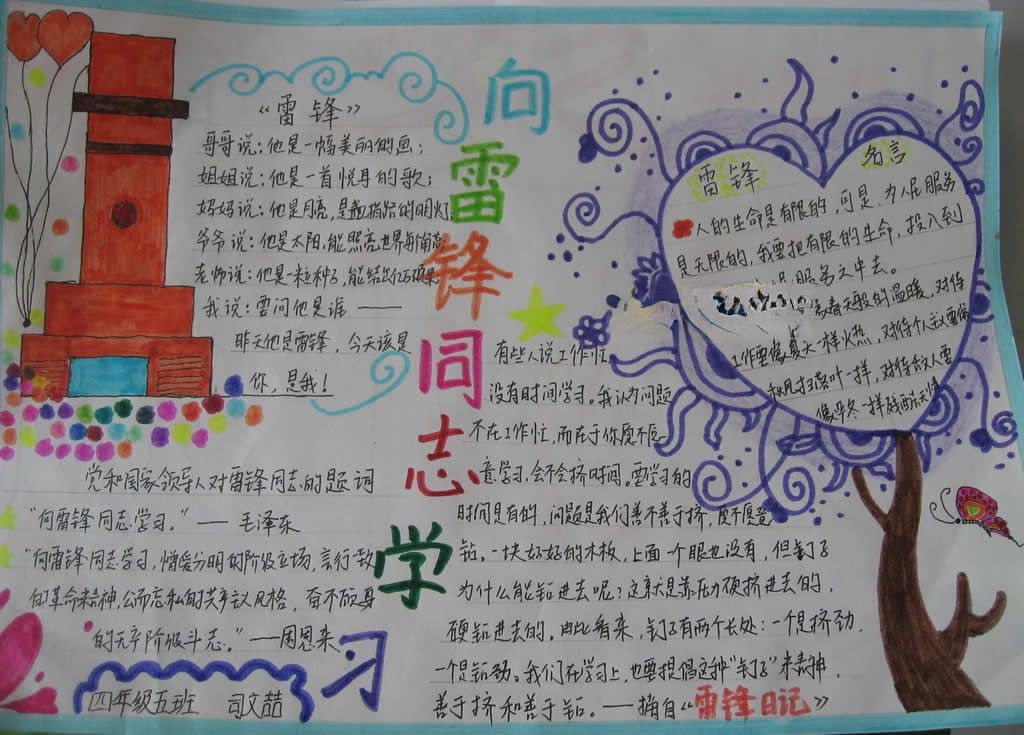 向雷锋同志学习
《雷锋》
哥哥说：他是一幅美丽的画；
姐姐说：他是一首悦耳的歌；
妈妈说：他是月亮，是指路的明灯；
爷爷说：他是太阳，能照亮世界每个角落
老师说：他是一粒种子，能结出亿万颗果
我说：要问他是谁——
昨天他是雷锋，今天该是
你，是我！
党和国家领导人对雷锋同志的题词
“向雷锋同志学习。”——毛泽东
“向雷锋同志学习，憎爱分明的阶级立场，言行一致
的革命精神，公而忘私的共产主义风格，奋不顾身
的无产阶级斗志。”——周恩来
四年级五班 司文喆
有些人说工作忙，
没有时间学习。我认为问题
不在工作忙，而在于你愿不愿
意学习，会不会挤时间。要学习的
时间是有的，问题是我们善不善于挤，愿不愿意
钻。一块好好的木板，上面一个眼也没有，但钉子
为什么能钻进去呢？这就是靠压力硬挤进去的，
硬钻进去的。由此看来，钉子有两个长处：一个是挤劲，
一个是钻劲。我们在学习上，也要提倡这种“钉子”精神，
善于挤和善于钻。——摘自《雷锋日记》
雷锋 名言
人的生命是有限的，可是，为人民服务
是无限的，我要把有限的生命，投入到
服务之中去。
春天般的温暖，对待
工作要像夏天一样火热，对待个人主义要像
秋风扫落叶一样，对待敌人要
像严冬一样残酷无情